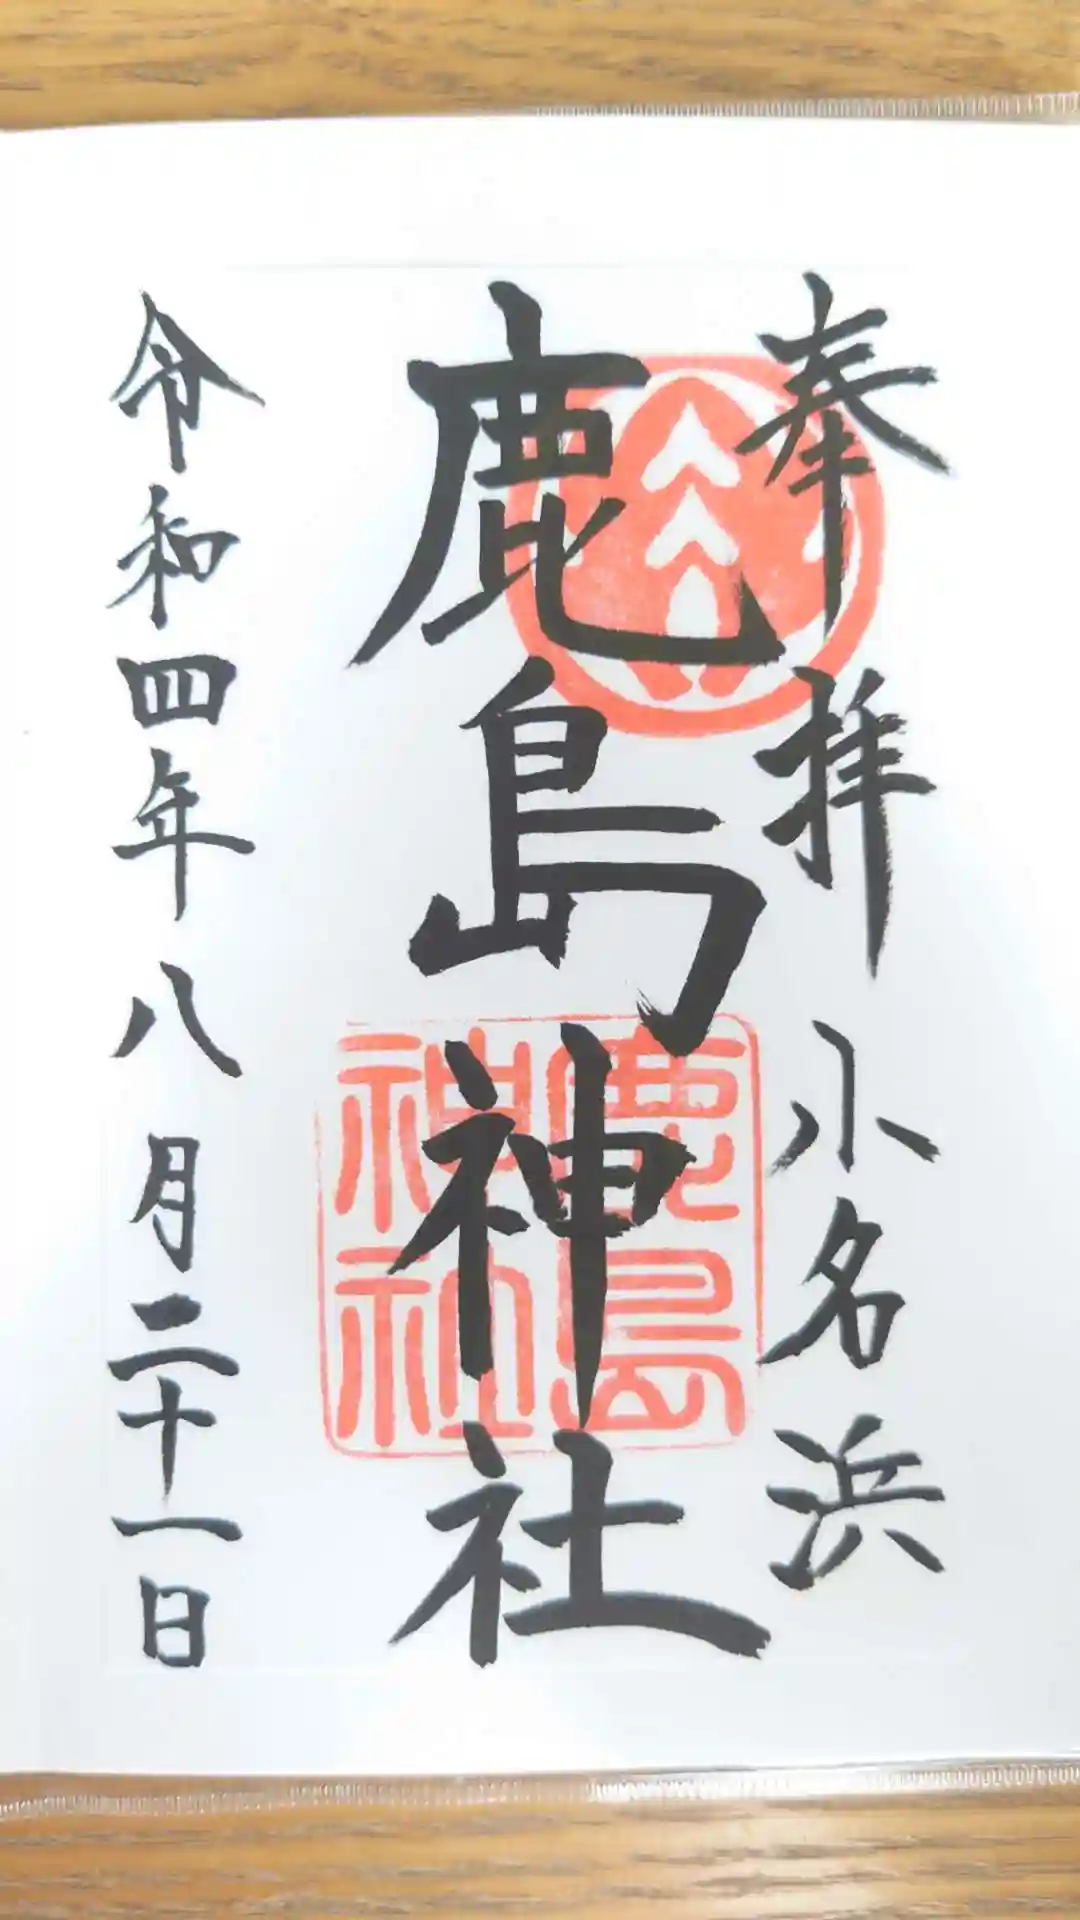 奉拝 小名浜
鹿島神社
令和四年八月二十一日
鹿島
神社